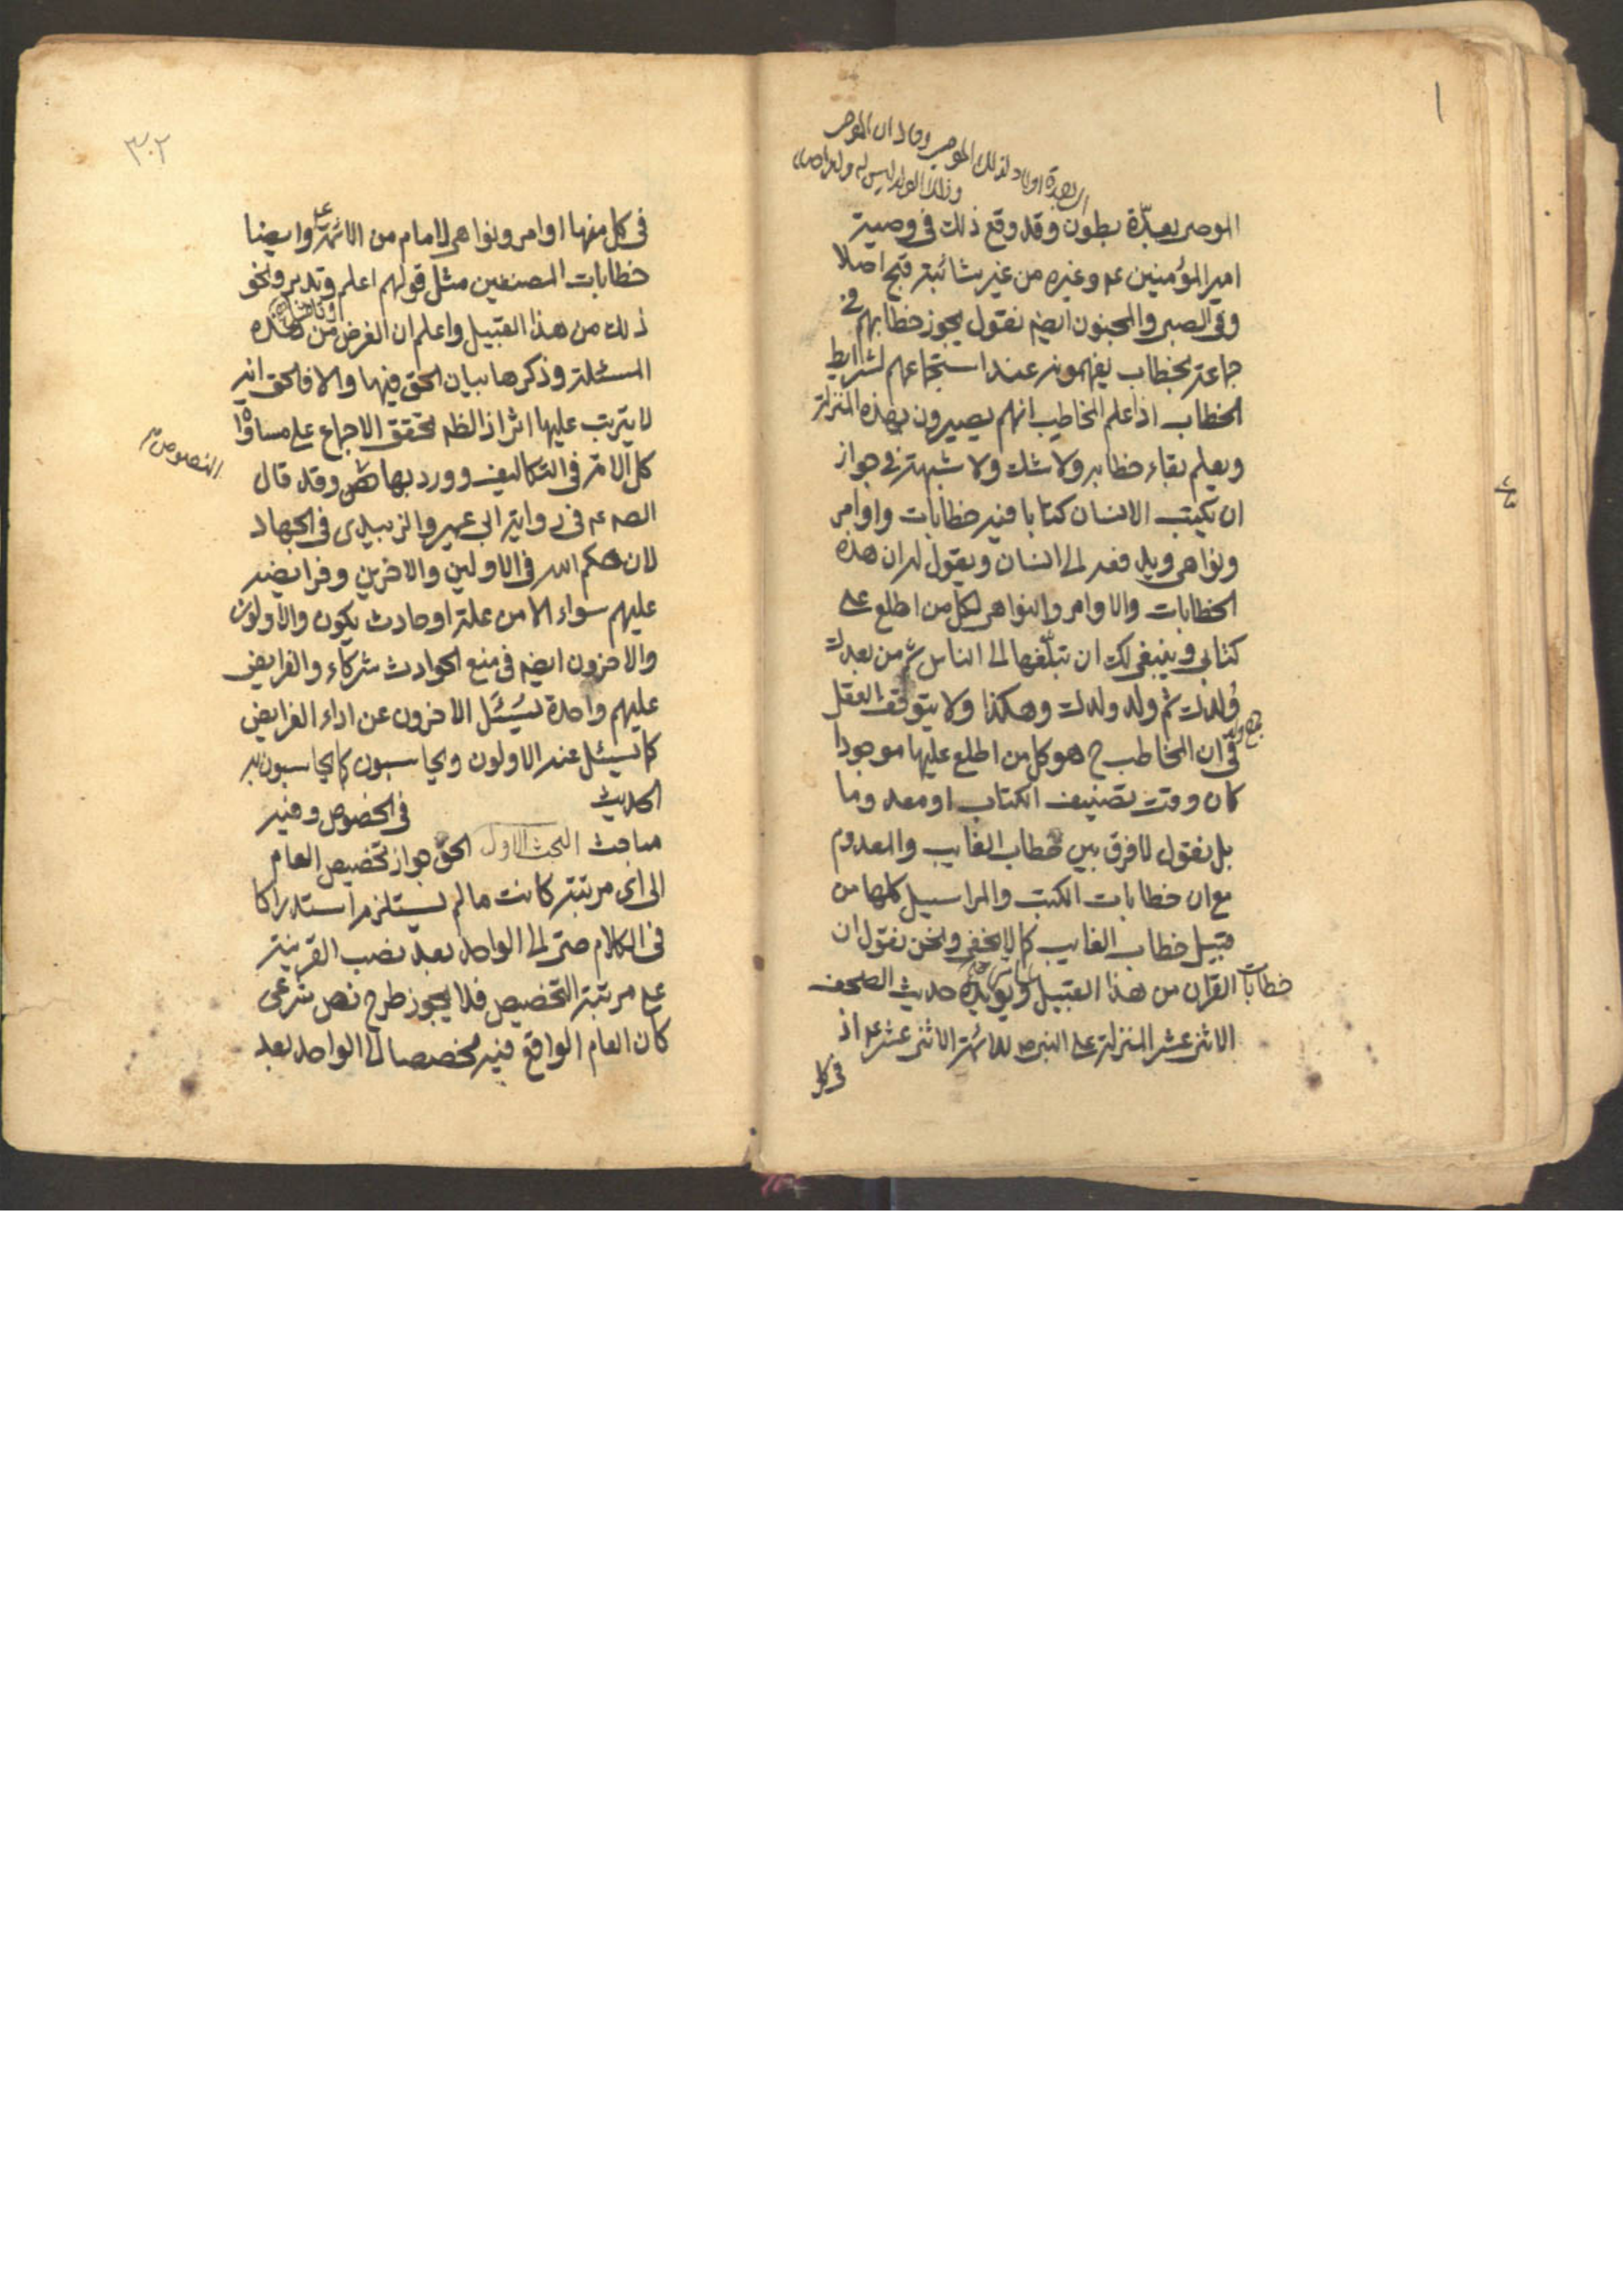 الموصى بعدّة بطون وقد وقع ذلك في وصية
امير المؤمنين ع وغيره من غير شائبة قبح اصلا
وفي الصبي والمجنون ايضا نقول يجوز خطابهم في
جماعة بخطاب يفهمونه عند استجماعهم لشرايط
الخطاب اذا علم المخاطب انهم يصيرون بهذه المنزلة
ويعلم بقاء خطابه ولا شك ولا شبهة في جواز
ان يكتب الانسان كتابا فيه خطابات واوامر
ونواهي ويدفعه الى انسان ويقول له ان هذه
الخطابات والاوامر والنواهي لكل من اطلع على
كتابي وينبغي لك ان تبلّغها الى الناس ثم من بعدك
وُلدك ثم ولد ولدك وهكذا ولا يتوقف العقل
في ان المخاطب ح هو كل من اطلع عليها موجودا
كان وقت تصنيف الكتاب او معدوما
بل نقول لا فرق بين خطاب الغايب والمعدوم
مع ان خطابات الكتب والمراسيل كلها من
قبيل خطاب الغايب كما لا يخفى ونحن نقول ان
خطابات القران من هذا القبيل ويؤيده حديث الصحف
الاثنى عشر المنزلة على النبي ص للائمة الاثنى عشر ع اذ
في كل
٣٠٢
في كل منها اوامر ونواهي لامام من الائمة ع وايضا
خطابات المصنفين مثل قولهم اعلم وتدبر ونحو
ذلك من هذا القبيل واعلم ان الغرض من هذه
المسئلة وذكرها بيان الحق فيها والا فالحق انه
لا يترتب عليها اثر اذ الظ تحقق الاجماع على مساواة
كل الامة في التكاليف وورد بها وقد قال
النصوص
الص ع في رواية ابي عمير والزبيدي في الجهاد
لان حكم الله في الاولين والاخرين وفرايضه
عليهم سواء الا من علة او حادث يكون والاولون
والاخرون ايضا في منع الحوادث شركاء والفرايض
عليهم واحدة يُسئَل الاخرون عن اداء الفرايض
كما يسئل عنه الاولون ويحاسبون كما يحاسبون به
الحديث في الخصوص وفيه
مباحث البحث الاول الحق جواز تخصيص العام
الى اي مرتبة كانت ما لم يستلزم استدراكا
في الكلام حتى الى الواحد بعد نصب القرينة
على مرتبة التخصيص فلا يجوز طرح نص شرعي
كان العام الواقع فيه مخصصا الى الواحد بعد